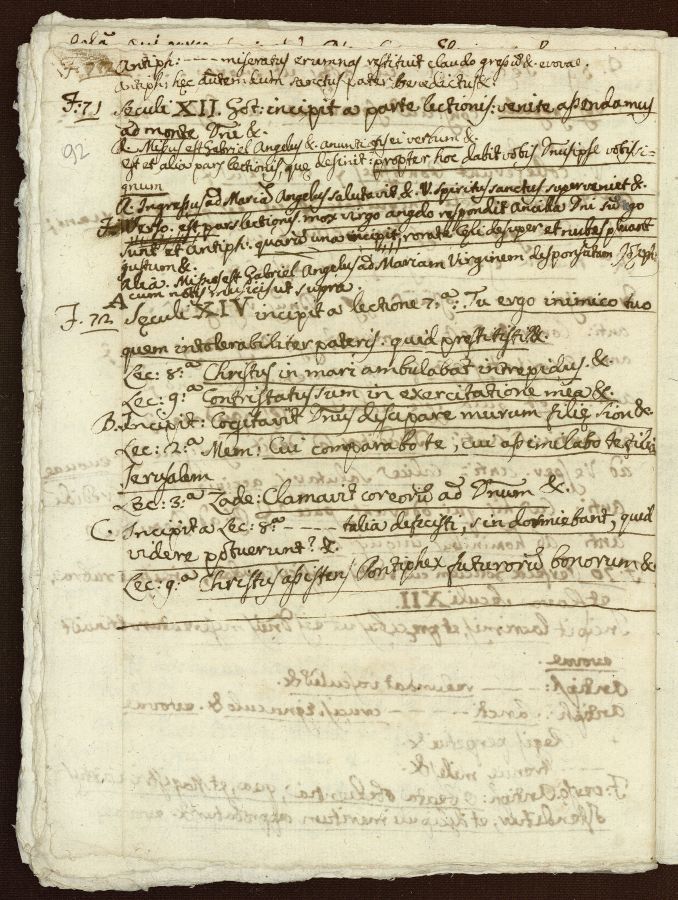 Antiph: ---- miseratus erumnas restituit claudo gressu &. evovae.
Antiph: hec autem cum sanctus pater Benedictus &.
F. 71 Seculi XII. Hoc: incipit a parte lectionis: venite ascendamus
ad monte Dni &.
92
R. Misus est Gabriel Angelus &. versum &.
est et alia pars lectionis que desinit: propter hoc dabit vobis Dnus ipse vobis si-
gnum
R. Ingressus ad Mariã Angelus salutavit &. V. Spiritus sanctus superveniet &.
est pars lectionis mox virgo angelo respondit Ancilla Dni
sunt et Antiph: quarũ una incipit, rorate celi desuper et nubes pluant
justum &.
Alia Misus est Gabriel Angelus ad Mariam Virginem desponsatam Joseph
cum notis musicis ut supra.
F. 72 A Seculi XIV incipit a lectione 7.ª: Tu ergo inimico tuo
quem intolerabiliter pateris, quid prestitisti &.
Lec: 8.ª Christus in mari ambulabat intrepidus. &.
Lec: 9.ª Contristatus sum in exercitatione mea &.
B. Incipit: Cogitavit Dnus discipare murum filie Sion &.
Lec: 2.ª Mem: Cui comparabo te, cui assimilabo te filia
Jerusalem
Lec: 3.ª Zade: Clamavit cor eorũ ad Dnum &.
C. Incipit a Lec: 8.ª ---- talia dixisti, si n dormiebant, quid
videre potuerunt? &.
Lec: 9.ª Christus assistens Pontiphex futurorũ bonorum &.